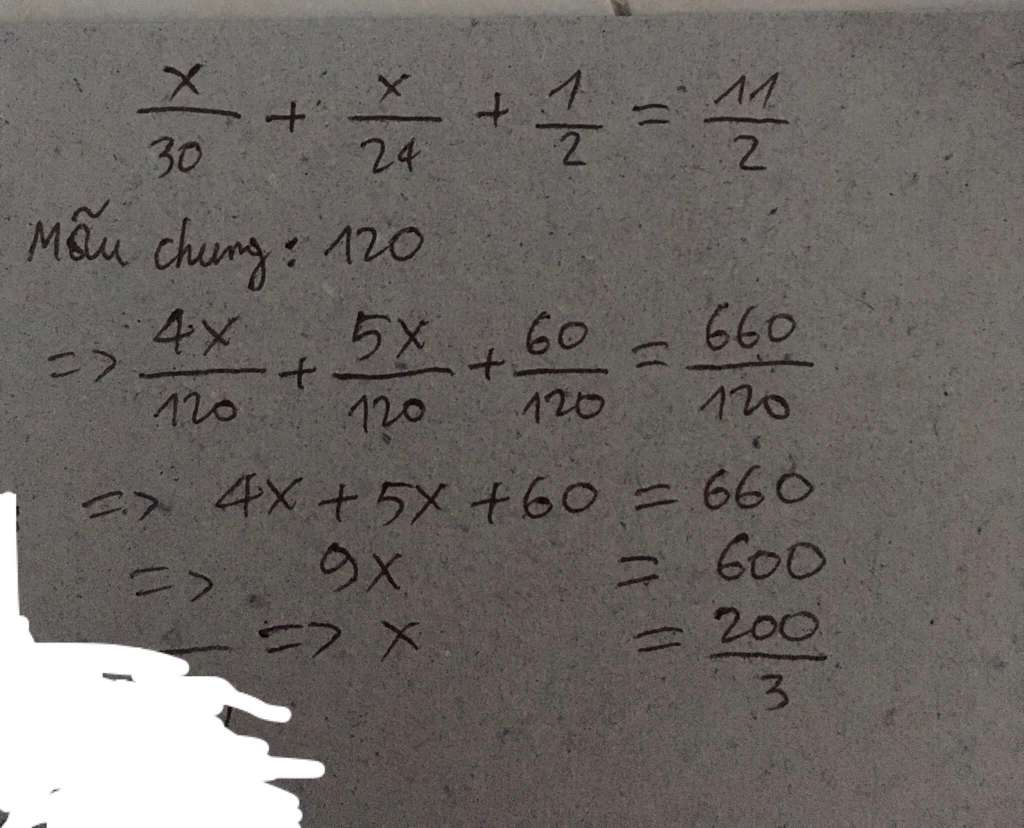 x/30 + x/24 + 1/2 = 11/2
Mẫu chung: 120
=> 4x/120 + 5x/120 + 60/120 = 660/120
=> 4x + 5x + 60 = 660
=> 9x = 600
=> x = 200/3